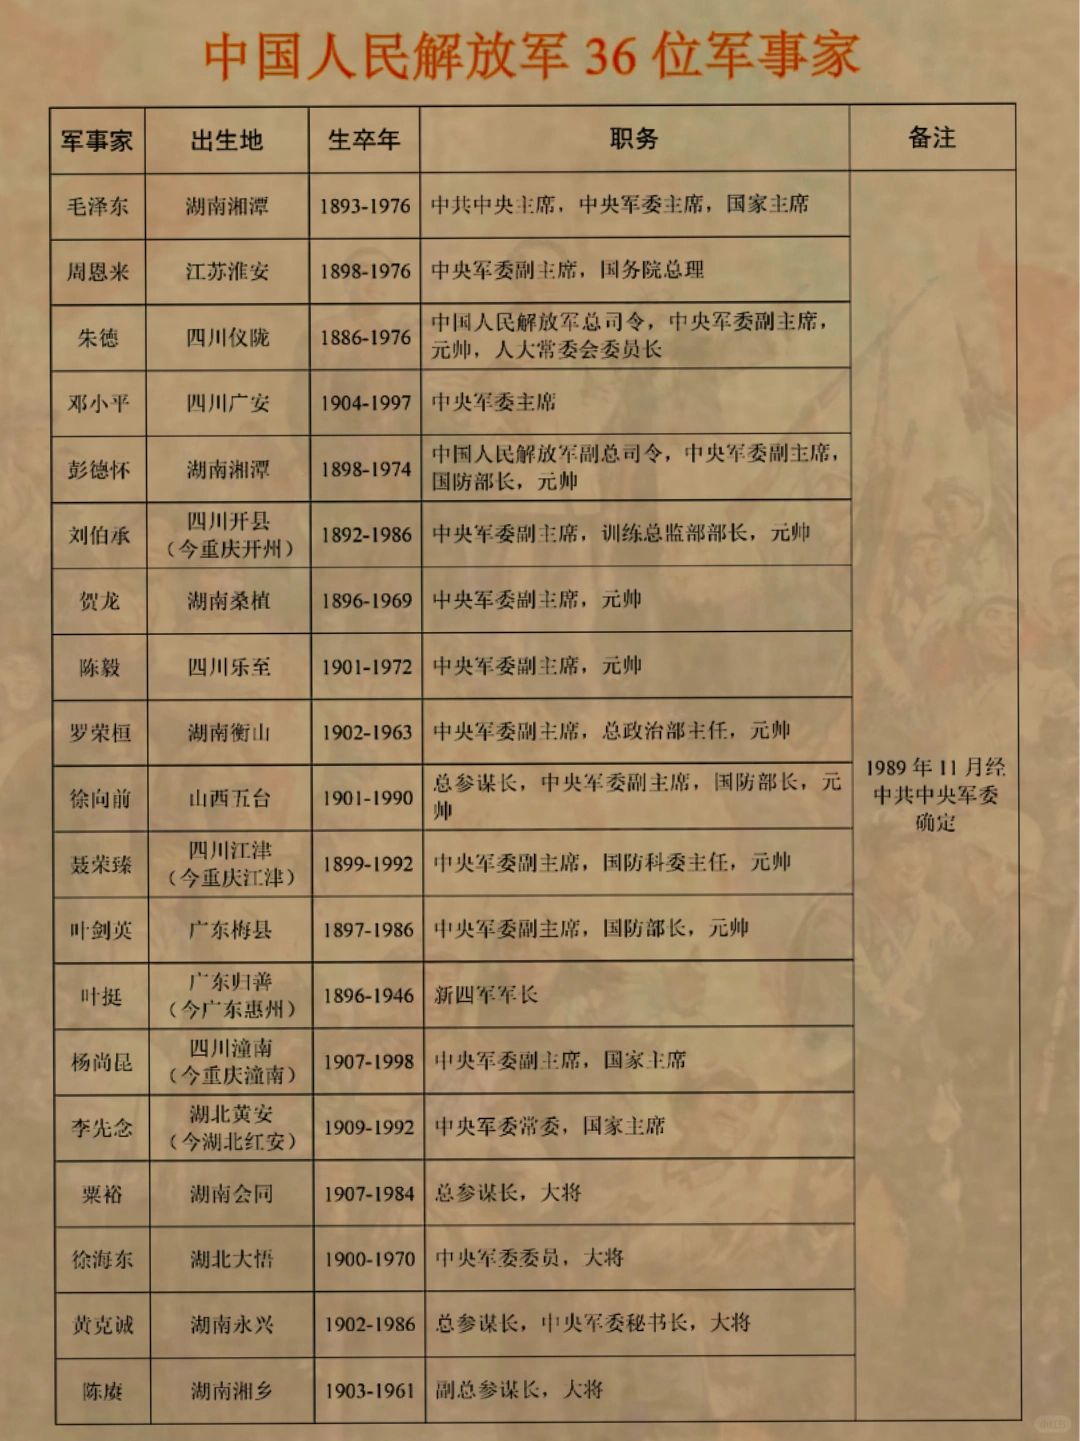 中国人民解放军 36 位军事家
军事家 出生地 生卒年 职务 备注
毛泽东 湖南湘潭 1893-1976 中共中央主席，中央军委主席，国家主席
周恩来 江苏淮安 1898-1976 中央军委副主席，国务院总理
朱德 四川仪陇 1886-1976 中国人民解放军总司令，中央军委副主席，
元帅，人大常委会委员长
邓小平 四川广安 1904-1997 中央军委主席
彭德怀 湖南湘潭 1898-1974 中国人民解放军副总司令，中央军委副主席，
国防部长，元帅
刘伯承 四川开县 1892-1986 中央军委副主席，训练总监部部长，元帅
（今重庆开州）
贺龙 湖南桑植 1896-1969 中央军委副主席，元帅
陈毅 四川乐至 1901-1972 中央军委副主席，元帅
罗荣桓 湖南衡山 1902-1963 中央军委副主席，总政治部主任，元帅
徐向前 山西五台 1901-1990 总参谋长，中央军委副主席，国防部长，元
帅
聂荣臻 四川江津 1899-1992 中央军委副主席，国防科委主任，元帅
（今重庆江津）
叶剑英 广东梅县 1897-1986 中央军委副主席，国防部长，元帅
叶挺 广东归善 1896-1946 新四军军长
（今广东惠州）
杨尚昆 四川潼南 1907-1998 中央军委副主席，国家主席
（今重庆潼南）
李先念 湖北黄安 1909-1992 中央军委常委，国家主席
（今湖北红安）
粟裕 湖南会同 1907-1984 总参谋长，大将
徐海东 湖北大悟 1900-1970 中央军委委员，大将
黄克诚 湖南永兴 1902-1986 总参谋长，中央军委秘书长，大将
陈赓 湖南湘乡 1903-1961 副总参谋长，大将
1989 年 11 月经
中共中央军委
确定